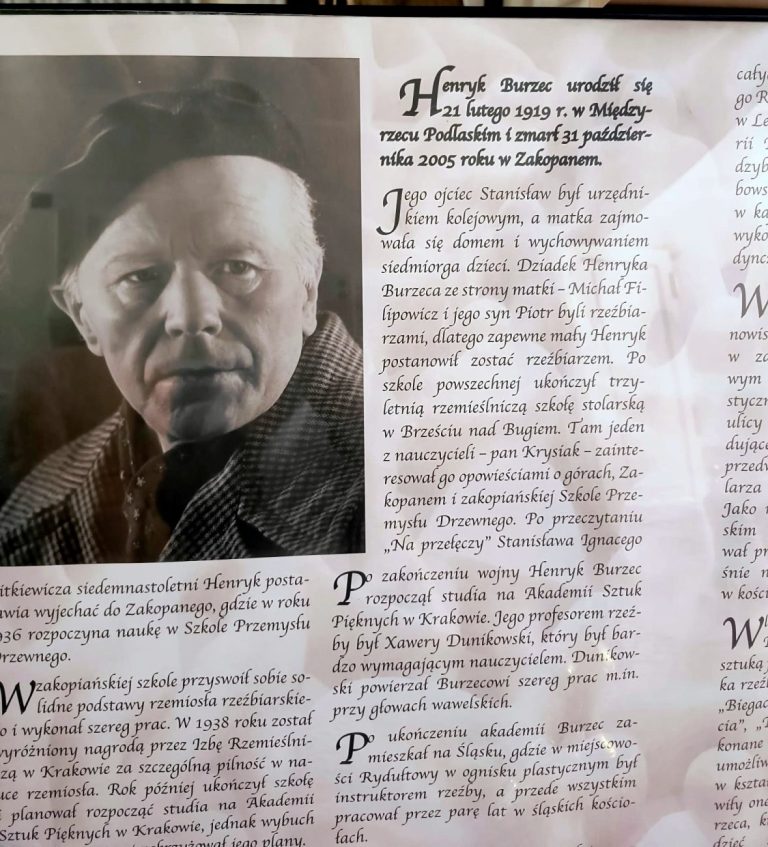 Henryk Burzec urodził się
21 lutego 1919 r. w Między-
rzecu Podlaskim i zmarł 31 paździer-
nika 2005 roku w Zakopanem.
Jego ojciec Stanisław był urzędni-
kiem kolejowym, a matka zajmo-
wała się domem i wychowywaniem
siedmiorga dzieci. Dziadek Henryka
Burzeca ze strony matki – Michał Fi-
lipowicz i jego syn Piotr byli rzeźbia-
rzami, dlatego zapewne mały Henryk
postanowił zostać rzeźbiarzem. Po
szkole powszechnej ukończył trzy-
letnią rzemieślniczą szkołę stolarską
w Brześciu nad Bugiem. Tam jeden
z nauczycieli – pan Krysiak – zainte-
resował go opowieściami o górach, Za-
kopanem i zakopiańskiej Szkole Prze-
mysłu Drzewnego. Po przeczytaniu
„Na przełęczy” Stanisława Ignacego
itkiewicza siedemnastoletni Henryk posta-
awia wyjechać do Zakopanego, gdzie w roku
936 rozpoczyna naukę w Szkole Przemysłu
Drzewnego.
W zakopiańskiej szkole przyswoił sobie so-
lidne podstawy rzemiosła rzeźbiarskie-
o i wykonał szereg prac. W 1938 roku został
wyróżniony nagrodą przez Izbę Rzemieślni-
zą w Krakowie za szczególną pilność w na-
uce rzemiosła. Rok później ukończył szkołę
i planował rozpocząć studia na Akademii
Sztuk Pięknych w Krakowie, jednak wybuch
jego plany.
Po zakończeniu wojny Henryk Burzec
rozpoczął studia na Akademii Sztuk
Pięknych w Krakowie. Jego profesorem rzeź-
by był Xawery Dunikowski, który był bar-
dzo wymagającym nauczycielem. Dunikow-
ski powierzał Burzecowi szereg prac m.in.
przy głowach wawelskich.
Po ukończeniu akademii Burzec za-
mieszkał na Śląsku, gdzie w miejscowo-
ści Rydułtowy w ognisku plastycznym był
instruktorem rzeźby, a przede wszystkim
pracował przez parę lat w śląskich kościo-
łach.
całyc
go R
w Le
rii
dzyb
bows
w ka
wyko
dyncz
W
nowis
w za
wym
styczn
ulicy
dujące
przedw
larza
Jako
skim
wał pr
śnie n
w kości
Wł
sztuką
ka rzeź
„Biegac
cia”,
konane
umożliw
w kszta
wiły one
rzeca, k
dzieć